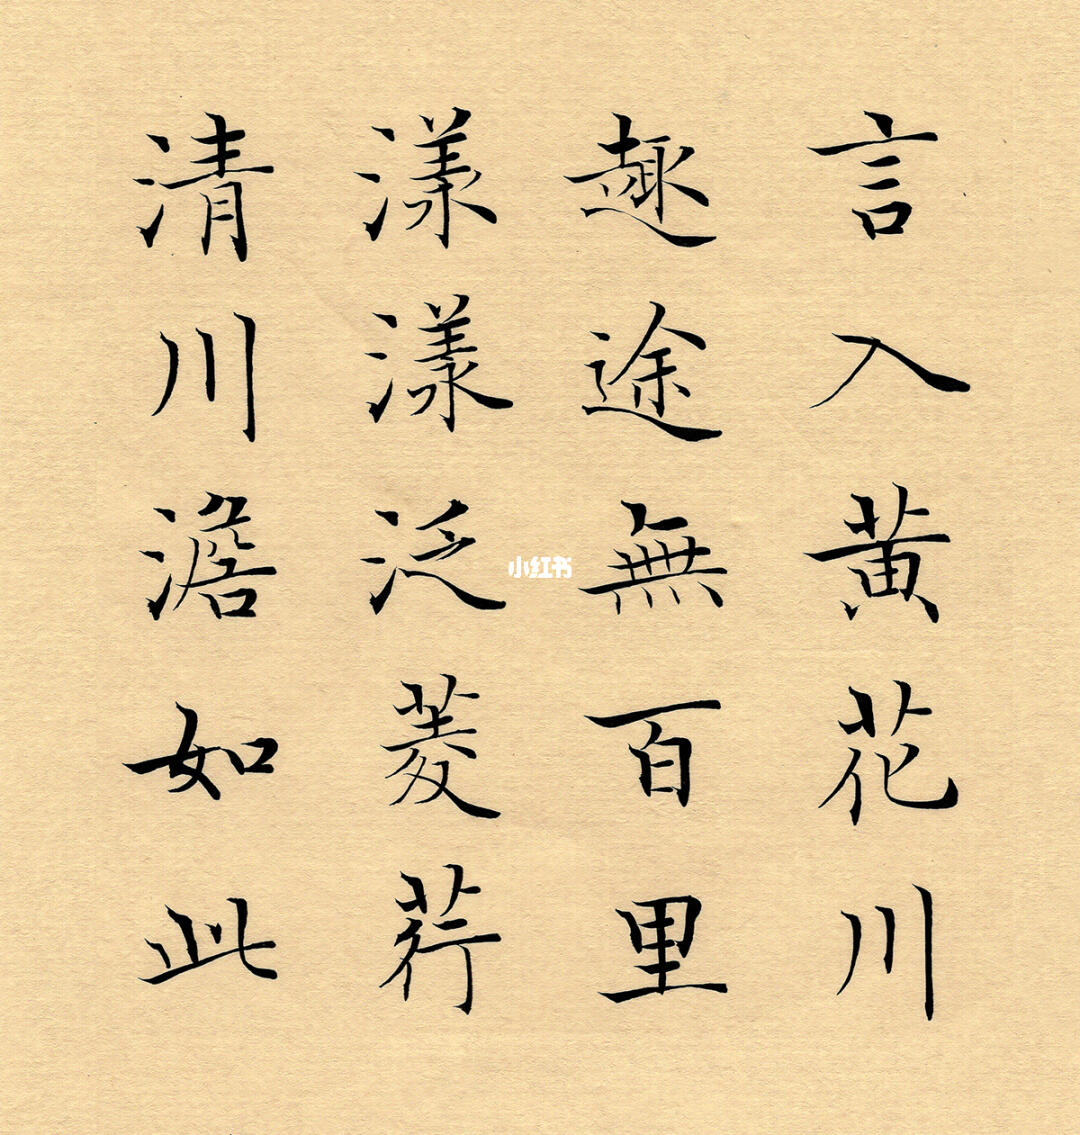 言入黄花川
趣途無百里
漾漾泛菱荇
清川澹如此
小红书